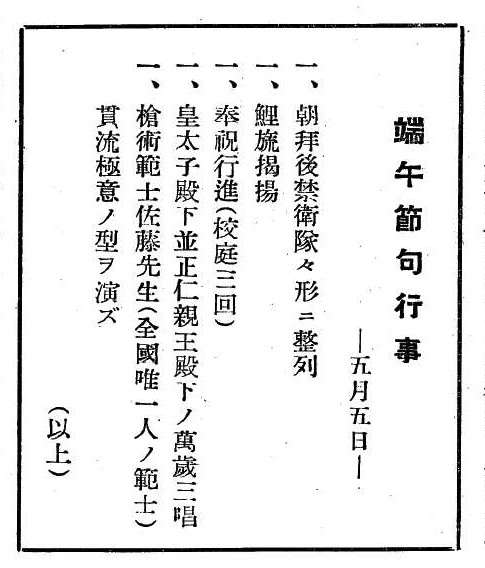 端午節句行事
―五月五日―
一、朝拜後禁衛隊々形ニ整列
一、鯉旒揭揚
一、奉祝行進(校庭三回)
一、皇太子殿下並正仁親王殿下ノ萬歲三唱
一、槍術範士佐藤先生(全國唯一人ノ範士)
貫流極意ノ型ヲ演ズ
(以上)